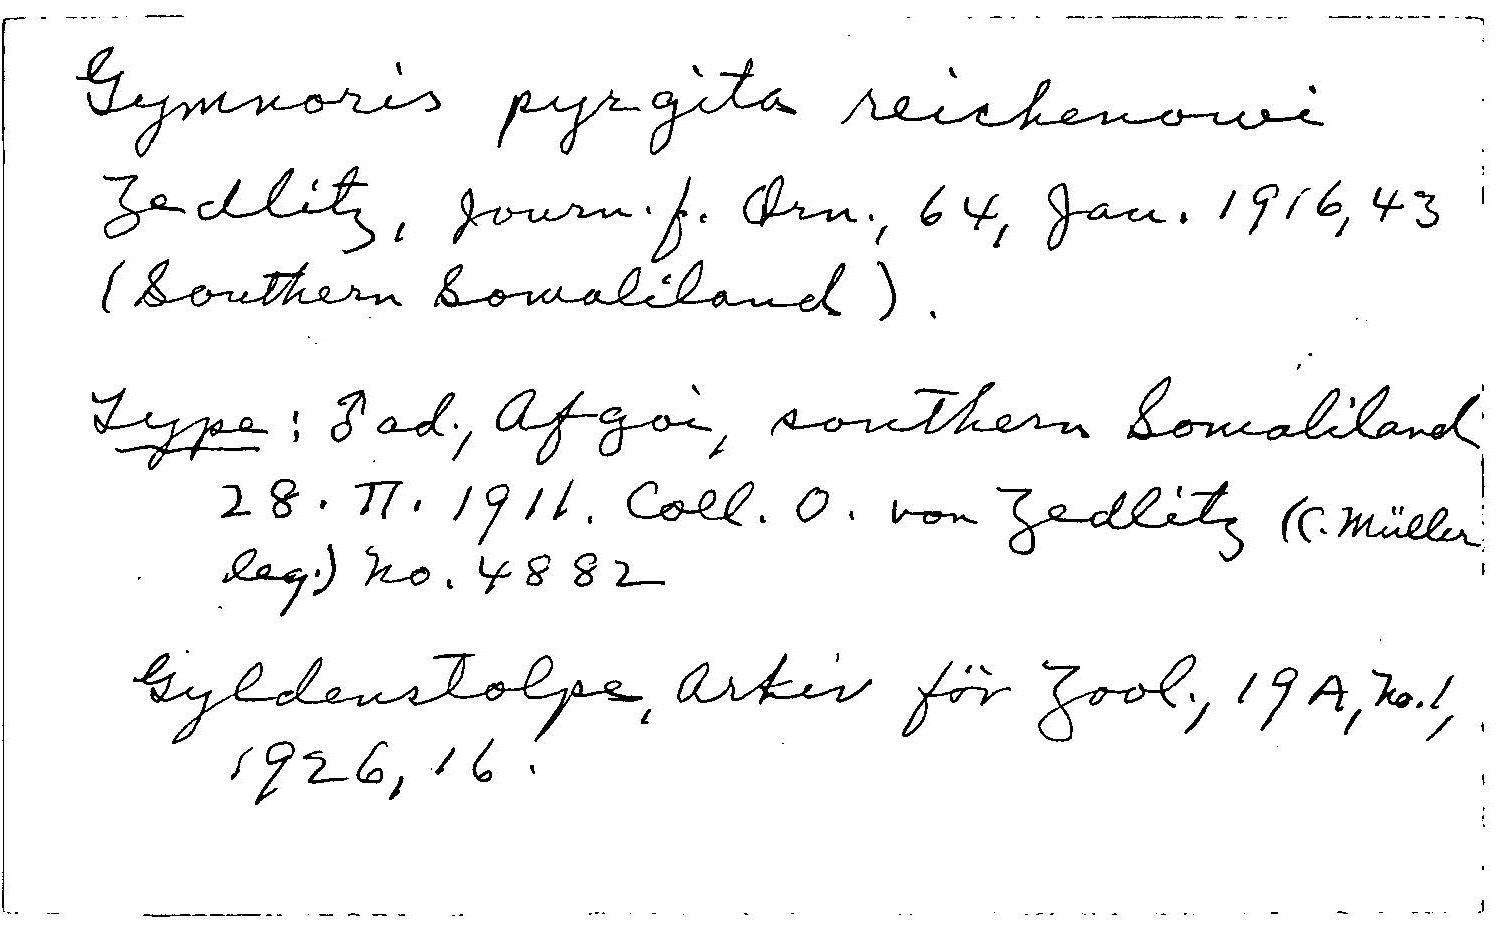 Gymnoris pyrgita reichenowi
Zedlitz, Journ. f. Orn., 64, Jan. 1916, 43
(Southern Somaliland).
Type: ♂ ad., Afgoi, southern Somaliland
28. II. 1911. Coll. O. von Zedlitz (C. Müller
leg.) No. 4882
Gyldenstolpe, Arkiv för Zool., 19A, No. 1,
1926, 16.